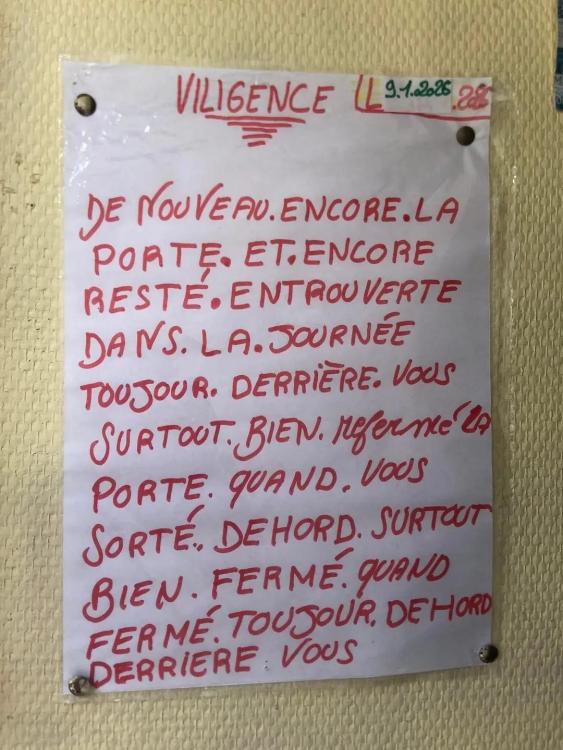 VILIGENCE 9.1.2026
DE NOUVEAU. ENCORE. LA
PORTE. ET. ENCORE
RESTÉ. ENTROUVERTE
DANS. LA. JOURNÉE
TOUJOUR. DERRIÈRE. VOUS
SURTOUT. BIEN. refermé LA
PORTE. QUAND. VOUS
SORTÉ. DEHORD. SURTOUT
BIEN. FERMÉ. QUAND
FERMÉ. TOUJOUR. DEHORD
DERRIERE VOUS